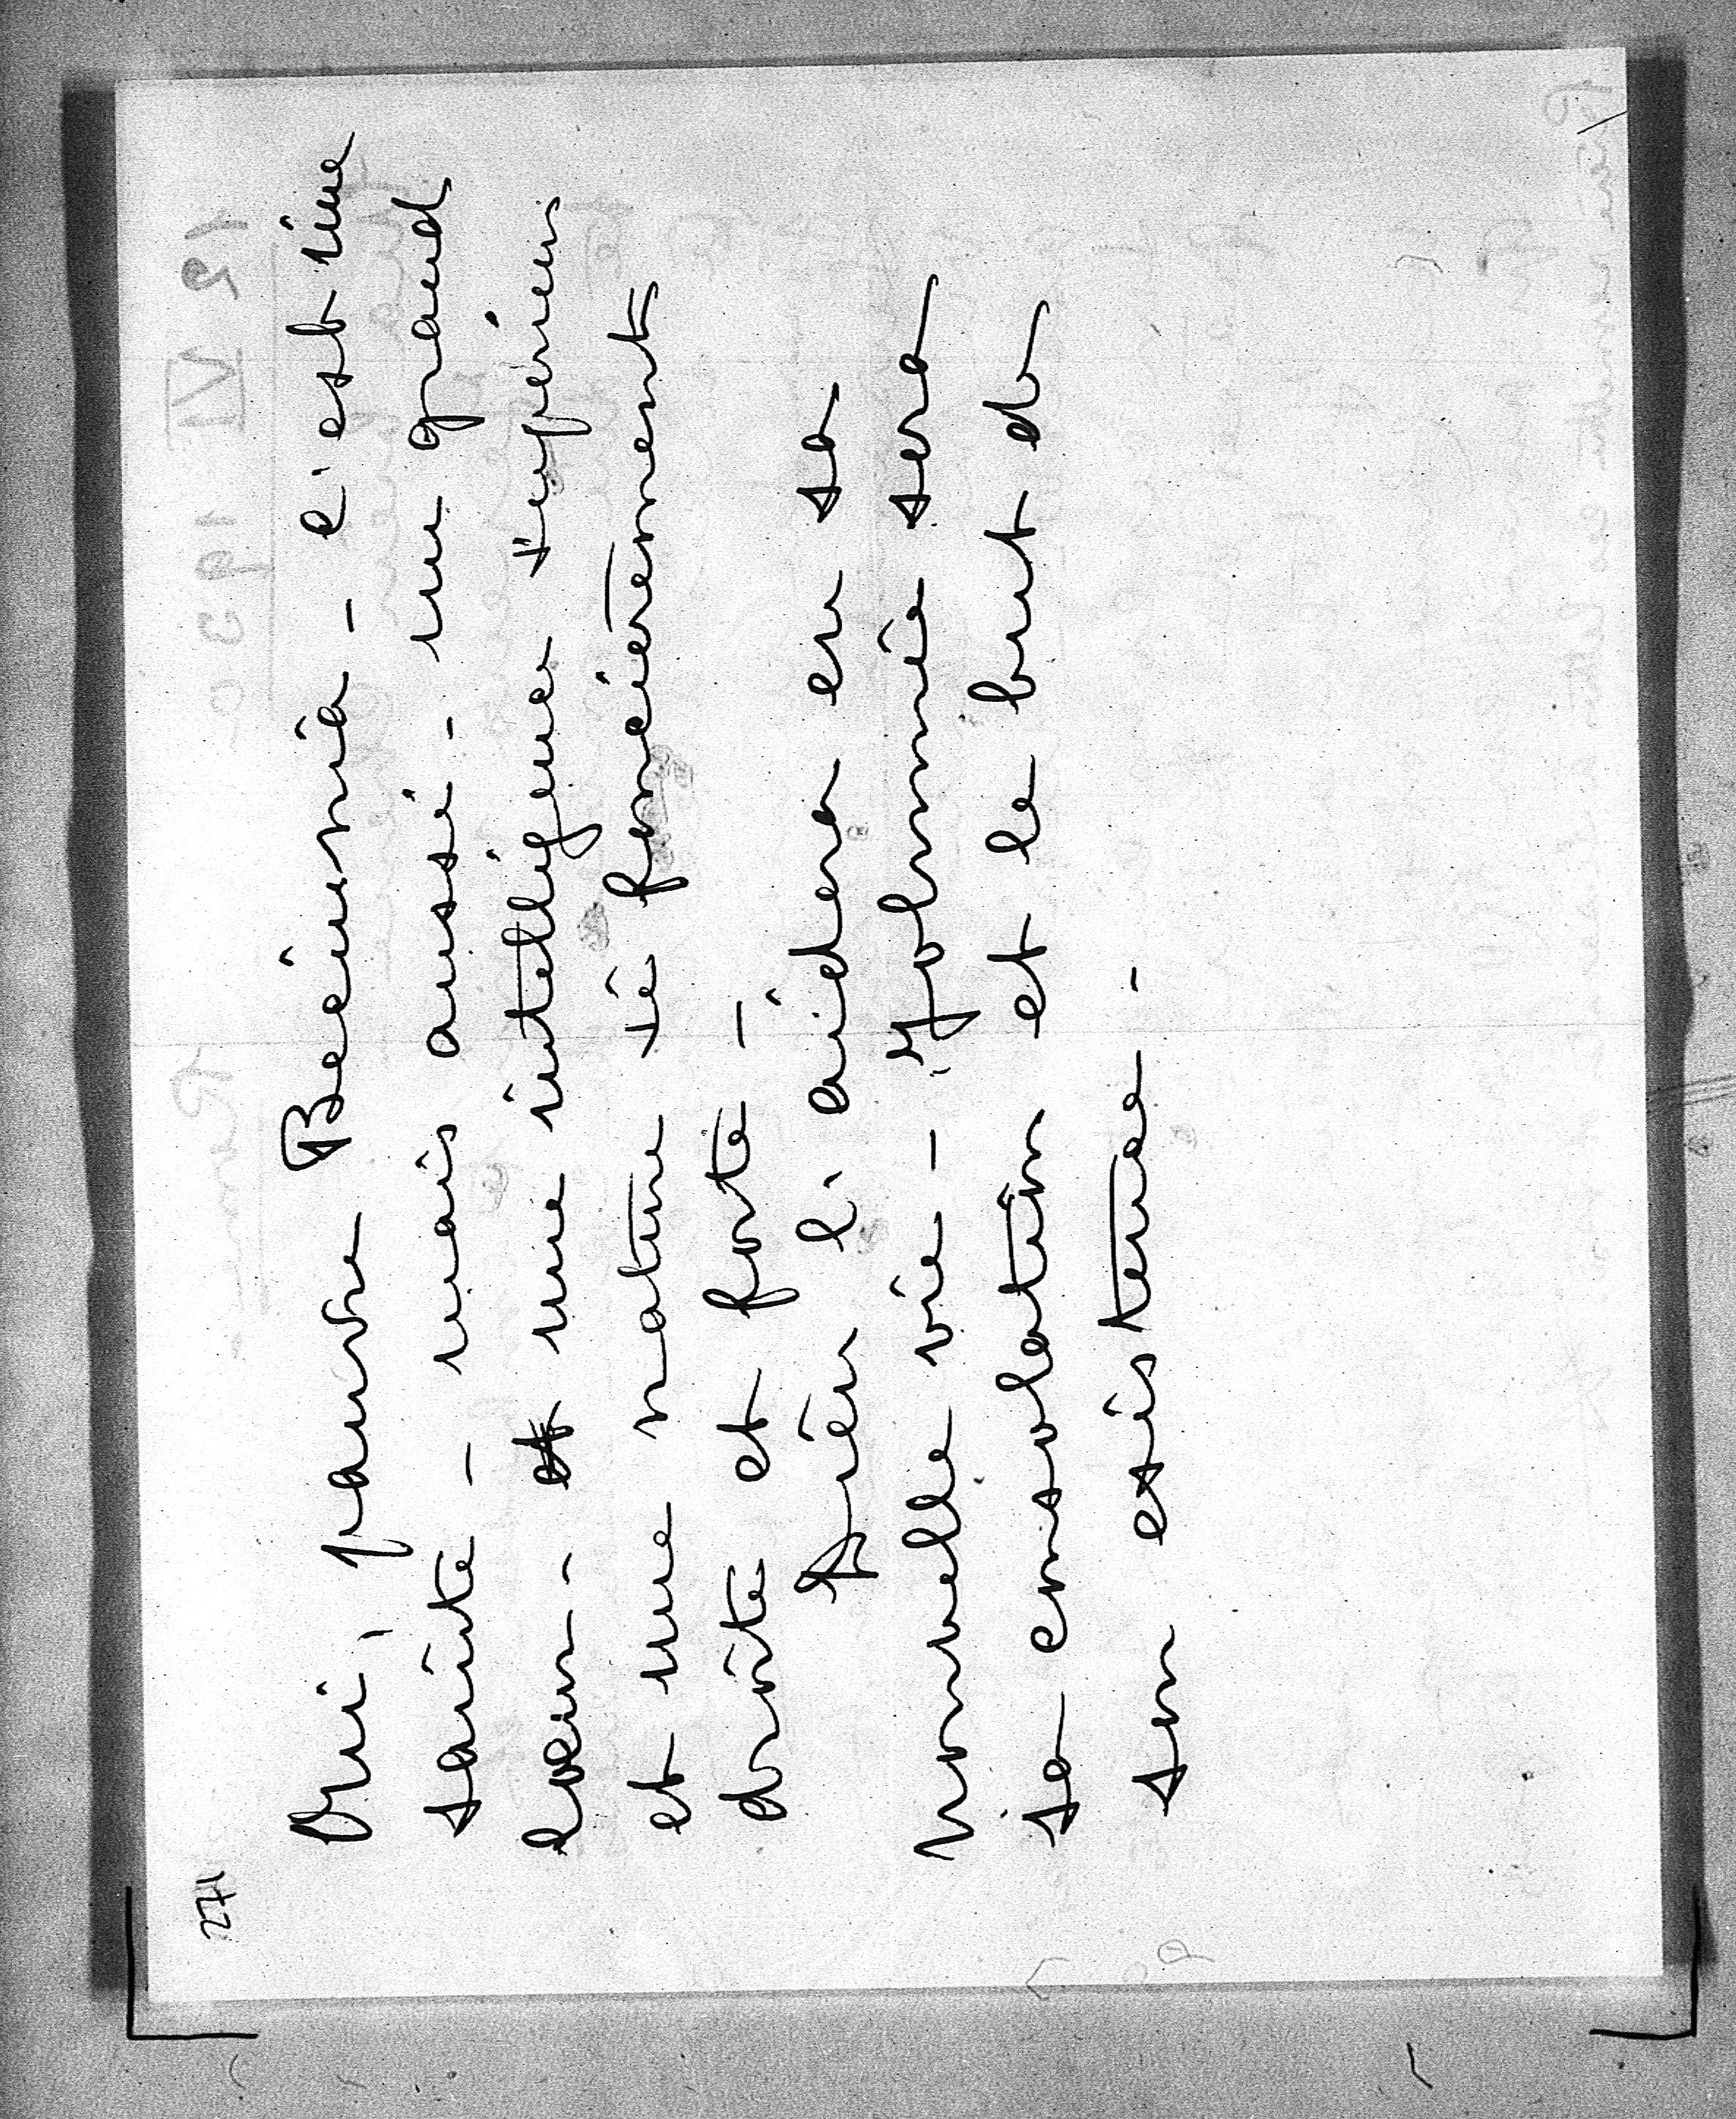 274
Oui, pauvre Beciunia - c'est une
sainte - mais aussi - un grand
coeur - et une intelligence supérieure
et une nature si foncièrement
droite et forte -
Dieu l'aidera en sa
nouvelle vie - Yolunia sera
sa consolation et le but de
son existence -